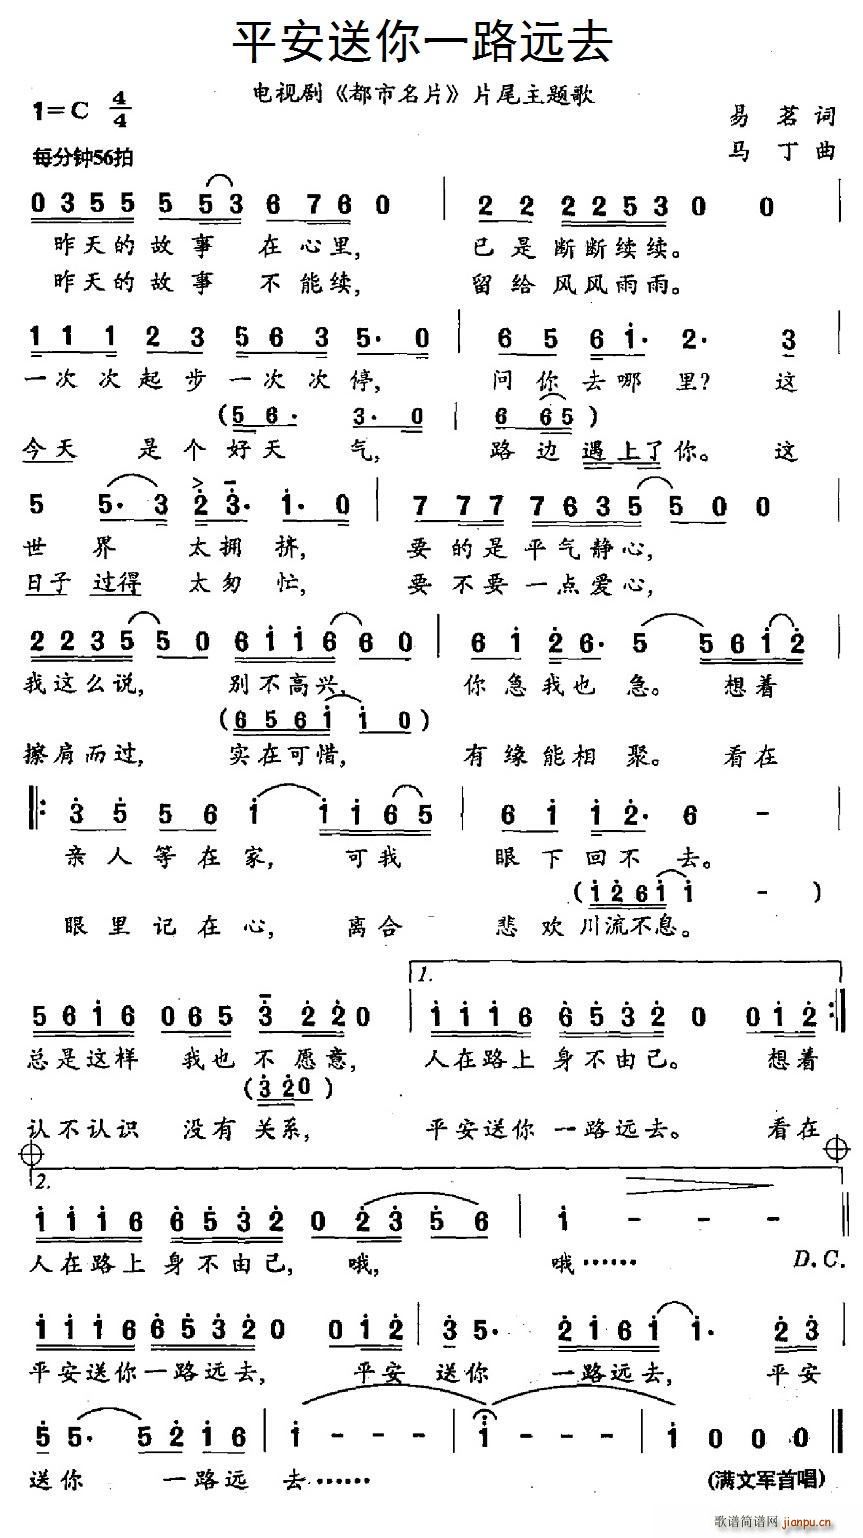 平安送你一路远去
电视剧《都市名片》片尾主题歌
1=C 4/4
易 茗 词
每分钟56拍
马 丁 曲
0 3 5 5 5 5 3 6 7 6 0 | 2 2 2 2 5 3 0 0 |
昨天的故事 在心里, 已是断断续续。
昨天的故事 不能续, 留给风风雨雨。
1 1 1 2 3 5 6 3 5· 0 | 6 5 6 1· 2· 3 |
一次次起步一次次停, 问你去哪里? 这
(5 6· 3· 0 | 6 6 5)
今天 是个好天 气, 路边遇上了你。这
5 5· 3 2 3· 1· 0 | 7 7 7 7 6 3 5 5 0 0 |
世 界 太拥挤, 要的是平气静心,
日子过得 太匆忙, 要不要一点爱心,
2 2 3 5 5 0 6 1 1 6 6 0 | 6 1 2 6· 5 5 6 1 2 |
我这么说, 别不高兴, 你急我也急。想着
(6 5 6 1 1 0)
擦肩而过, 实在可惜, 有缘能相聚。看在
3 5 5 6 1 1 1 6 5 | 6 1 1 2· 6 - |
亲人等在家, 可我 眼下回不去。
(1 2 6 1 1 - )
眼里记在心, 离合 悲欢川流不息。
1.
5 6 1 6 0 6 5 3 2 2 0 | 1 1 1 6 6 5 3 2 0 0 1 2 :|
总是这样 我也不愿意, 人在路上身不由己。 想着
(3 2 0)
认不认识 没有关系, 平安送你一路远去。 看在
2.
1 1 1 6 6 5 3 2 0 2 3 5 6 | 1 - - - ‖
人在路上身不由己, 哦, 哦…… D.C.
1 1 1 6 6 5 3 2 0 0 1 2 | 3 5· 2 1 6 1 1· 2 3 |
平安送你一路远去, 平安 送你 一路远去, 平安
5 5· 5 2 1 6 | 1 - - - | 1 - - - | 1 0 0 0 ‖
送你 一路远 去……
(满文军首唱)
歌谱简谱网
jianpu.cn